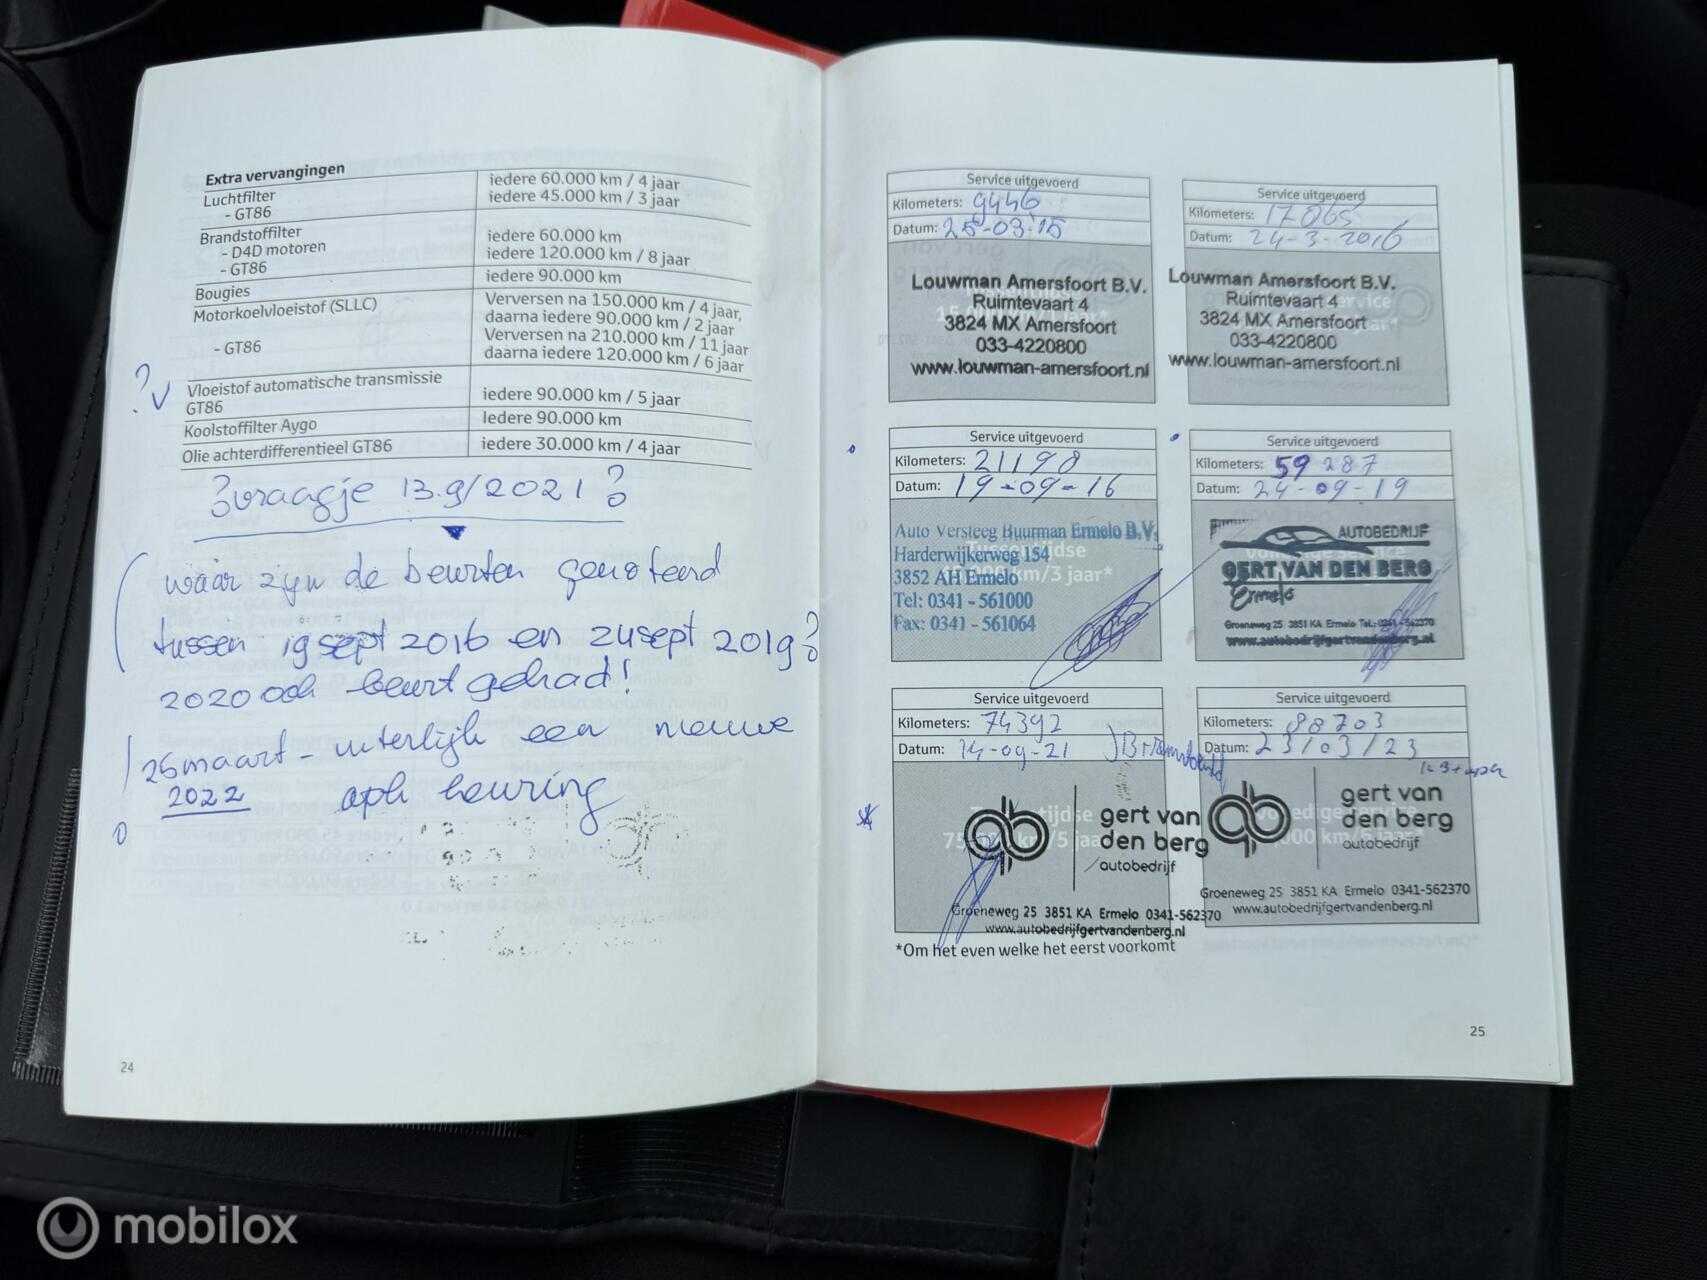 Extra vervangingen
Luchtfilter iedere 60.000 km / 4 jaar
- GT86 iedere 45.000 km / 3 jaar
Brandstoffilter
- D4D motoren iedere 60.000 km
- GT86 iedere 120.000 km / 8 jaar
Bougies iedere 90.000 km
Motorkoelvloeistof (SLLC) Verversen na 150.000 km / 4 jaar,
daarna iedere 90.000 km / 2 jaar
- GT86 Verversen na 210.000 km / 11 jaar
daarna iedere 120.000 km / 6 jaar
? Vloeistof automatische transmissie
GT86 iedere 90.000 km / 5 jaar
Koolstoffilter Aygo Iedere 90.000 km
Olie achterdifferentieel GT86 iedere 30.000 km / 4 jaar
? vraagje 13.9/2021 ?
waar zijn de beurten genoteerd
tussen 19 sept 2016 en 24 sept 2019?
2020 ook beurt gehad!
26 maart - uiterlijk een nieuwe
2022 apk keuring
24
Service uitgevoerd
Kilometers: 9446
Datum: 25-03-15
Louwman Amersfoort B.V.
Ruimtevaart 4
3824 MX Amersfoort
033-4220800
www.louwman-amersfoort.nl
Service uitgevoerd
Kilometers: 17065
Datum: 24-3-2016
Louwman Amersfoort B.V.
Ruimtevaart 4
3824 MX Amersfoort
033-4220800
www.louwman-amersfoort.nl
Service uitgevoerd
Kilometers: 21198
Datum: 19-09-16
Auto Versteeg Buurman Ermelo B.V.
Harderwijkerweg 154
3852 AH Ermelo
Tel: 0341 - 561000
Fax: 0341 - 561064
Service uitgevoerd
Kilometers: 59287
Datum: 24-09-19
AUTOBEDRIJF
GERT VAN DEN BERG
Ermelo
Groeneweg 25 3851 KA Ermelo Tel.: 0341-562370
www.autobedrijfgertvandenberg.nl
Service uitgevoerd
Kilometers: 74392
Datum: 14-09-21
gert van
den berg
autobedrijf
Groeneweg 25 3851 KA Ermelo 0341-562370
www.autobedrijfgertvandenberg.nl
Service uitgevoerd
Kilometers: 88703
Datum: 23/03/23
gert van
den berg
autobedrijf
Groeneweg 25 3851 KA Ermelo 0341-562370
www.autobedrijfgertvandenberg.nl
*Om het even welke het eerst voorkomt
25
mobilox